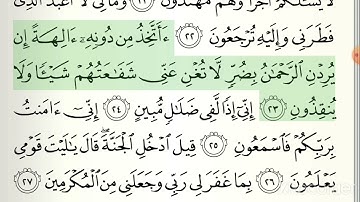 يَسْـَٔلُكُمْ أَجْرًا وَهُم مُّهْتَدُونَ ٢١ وَمَالِىَ لَآ أَعْبُدُ ٱلَّذِى
فَطَرَنِى وَإِلَيْهِ تُرْجَعُونَ ٢٢ ءَأَتَّخِذُ مِن دُونِهِۦٓ ءَالِهَةً إِن
يُرِدْنِ ٱلرَّحْمَٰنُ بِضُرٍّ لَّا تُغْنِ عَنِّى شَفَٰعَتُهُمْ شَيْـًٔا وَلَا
يُنقِذُونِ ٢٣ إِنِّىٓ إِذًا لَّفِى ضَلَٰلٍ مُّبِينٍ ٢٤ إِنِّىٓ ءَامَنتُ
بِرَبِّكُمْ فَٱسْمَعُونِ ٢٥ قِيلَ ٱدْخُلِ ٱلْجَنَّةَ قَالَ يَٰلَيْتَ قَوْمِى
يَعْلَمُونَ ٢٦ بِمَا غَفَرَ لِى رَبِّى وَجَعَلَنِى مِنَ ٱلْمُكْرَمِينَ ٢٧